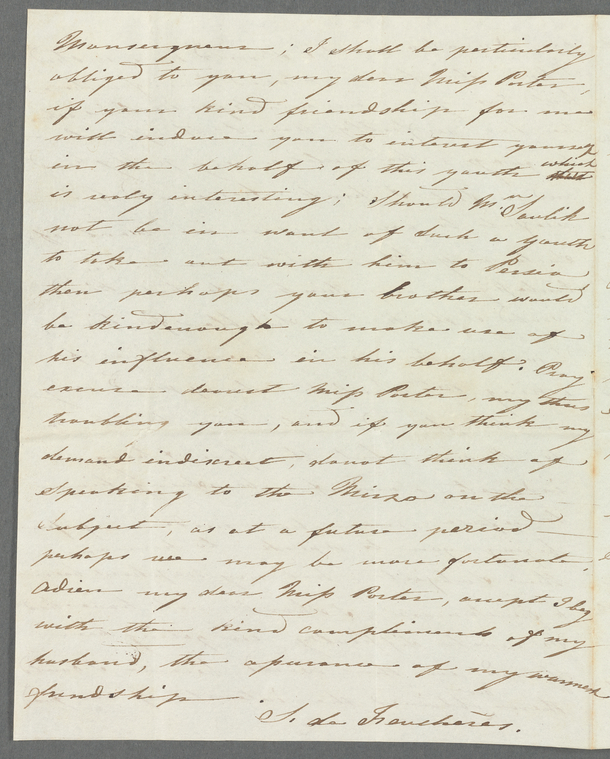 Monseigneur; I shall be particularly
obliged to you, my dear Miss Porter,
if your kind friendship for me
will induce you to interest yourself
in the behalf of this youth which
is realy interesting; Should Mr
not be in want of such a youth
to take out with him to Persia
then perhaps your brother would
be kindenough to make use of
his influence in his behalf. Pray
excuse dearest Miss Porter, my thus
troubling you, and if you think my
demand indiscreet, donot think of
speaking to the Mirza on the
subject, as at a future period
perhaps we may be more fortunate.
Adieu my dear Miss Porter, accept I beg
with the kind compliments of my
husband, the assurance of my warmest
friendship
S. de